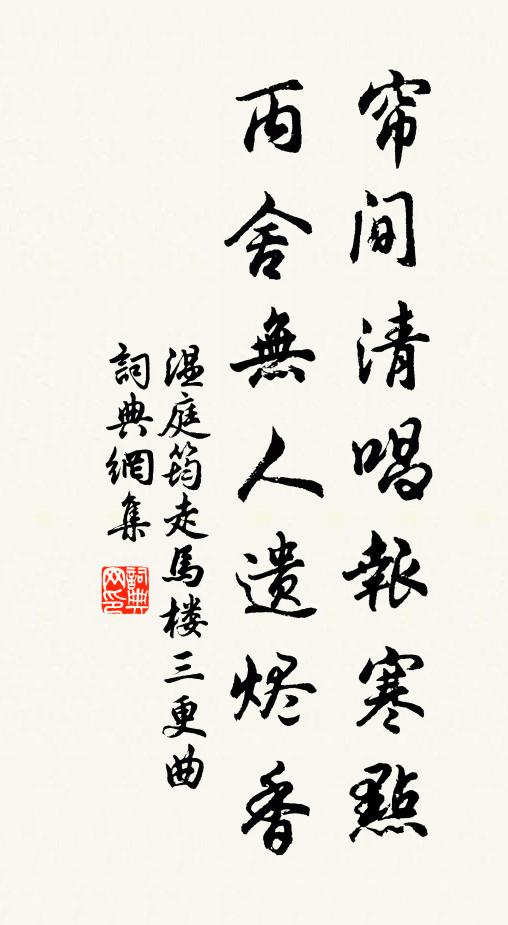 帘间清唱報寒點
丙舍無人遗烬香
温庭筠走馬楼三更曲
詞典網集
詞典
网印